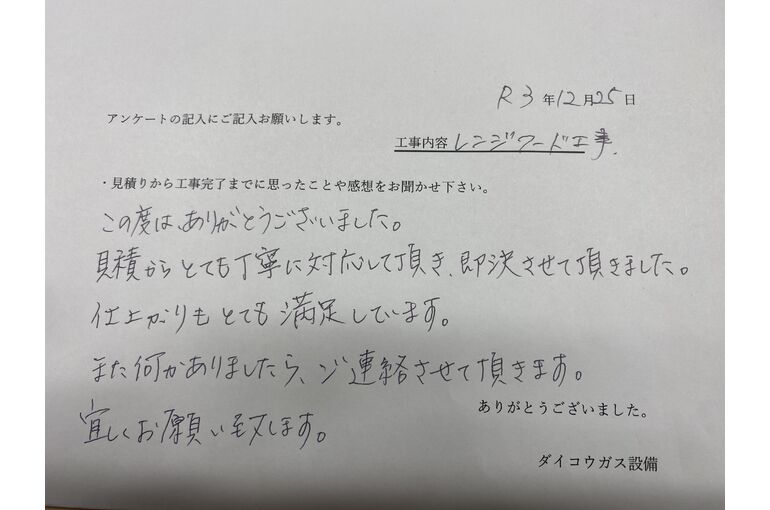 R3年12月25日
アンケートの記入にご記入お願いします。
工事内容 レンジフード工事.
・見積りから工事完了までに思ったことや感想をお聞かせ下さい。
この度は、ありがとうございました。
見積からとても丁寧に対応して頂き、即決させて頂きました。
仕上がりもとても満足しています。
また何かありましたら、ご連絡させて頂きます。
宜しくお願い致します。
ありがとうございました。
ダイコウガス設備